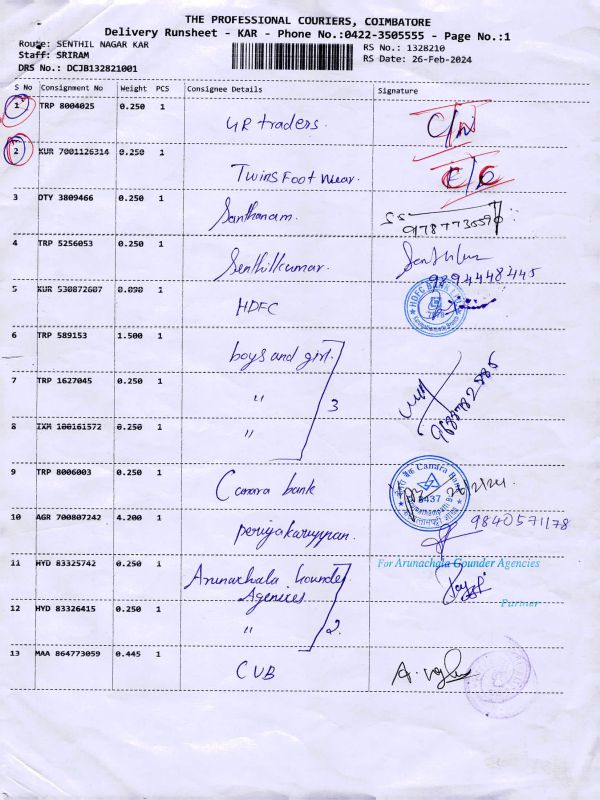 THE PROFESSIONAL COURIERS, COIMBATORE
Delivery Runsheet - KAR - Phone No.:0422-3505555 - Page No.:1
Route: SENTHIL NAGAR KAR
RS No.: 1328210
Staff: SRIRAM
RS Date: 26-Feb-2024
DRS No.: DCJB132821001
S No Consignment No Weight PCS Consignee Details Signature
1 TRP 8004025 0.250 1
UR traders. C/N
2 KUR 7001126314 0.250 1
Twins Foot wear.
3 DTY 3809466 0.250 1
Santhanam.
4 TRP 5256053 0.250 1
Senthilkumar.
9894448445
5 KUR 530872607 0.090 1
HDFC
HDFC
6 TRP 589153 1.500 1
boys and girl.
7 TRP 1627045 0.250 1
" 3
8 IXM 100161572 0.250 1
"
9 TRP 8006003 0.250 1
Canara bank
Canara Bank
8437
26/2/24
10 AGR 700807242 4.200 1
periyakaruppan.
9840571178
11 HYD 83325742 0.250 1
Arunachala Gounder
Agenices
For Arunachala Gounder Agencies
Partner
12 HYD 83326415 0.250 1
" 2.
13 MAA 864773059 0.445 1
CUB